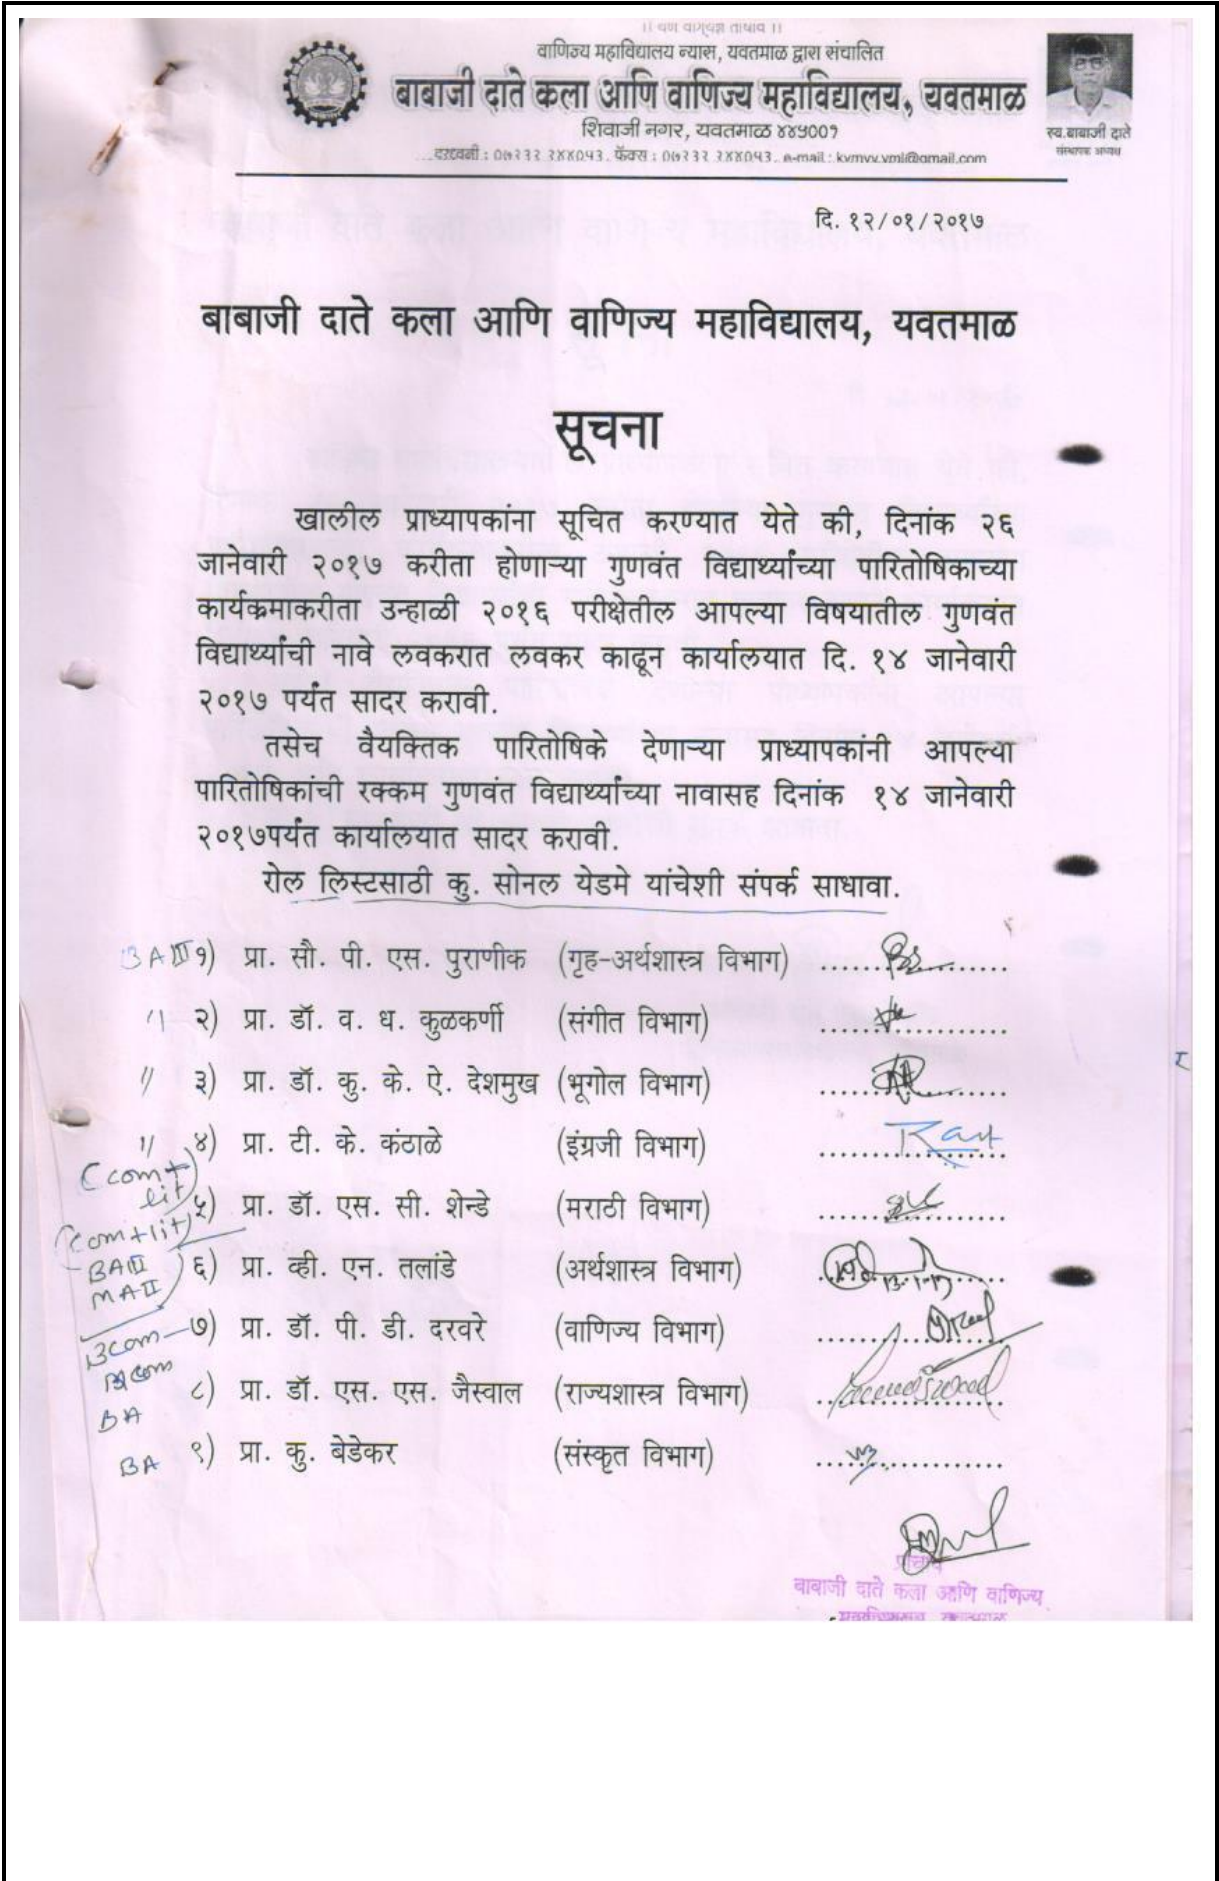 वाणिज्य महाविद्यालय न्यास, यवतमाळ द्वारा संचालित
बाबाजी दाते कला आणि वाणिज्य महाविद्यालय, यवतमाळ
शिवाजी नगर, यवतमाळ ४४५००१
स्व.बाबाजी दाते
संस्थापक अध्यक्ष
दि. १२/०१/२०१७
बाबाजी दाते कला आणि वाणिज्य महाविद्यालय, यवतमाळ
सूचना
खालील प्राध्यापकांना सूचित करण्यात येते की, दिनांक २६
जानेवारी २०१७ करीता होणाऱ्या गुणवंत विद्यार्थ्यांच्या पारितोषिकाच्या
कार्यक्रमाकरीता उन्हाळी २०१६ परीक्षेतील आपल्या विषयातील गुणवंत
विद्यार्थ्यांची नावे लवकरात लवकर काढून कार्यालयात दि. १४ जानेवारी
२०१७ पर्यंत सादर करावी.
तसेच वैयक्तिक पारितोषिके देणाऱ्या प्राध्यापकांनी आपल्या
पारितोषिकांची रक्कम गुणवंत विद्यार्थ्यांच्या नावासह दिनांक १४ जानेवारी
२०१७पर्यंत कार्यालयात सादर करावी.
रोल लिस्टसाठी कु. सोनल येडमे यांचेशी संपर्क साधावा.
BA III १) प्रा. सौ. पी. एस. पुराणीक (गृह-अर्थशास्त्र विभाग)
" २) प्रा. डॉ. व. ध. कुळकर्णी (संगीत विभाग)
" ३) प्रा. डॉ. कु. के. ऐ. देशमुख (भूगोल विभाग)
" ४) प्रा. टी. के. कंठाळे (इंग्रजी विभाग)
(com+
lit)
५) प्रा. डॉ. एस. सी. शेन्डे (मराठी विभाग)
(com+lit)
BA III
MA II
६) प्रा. व्ही. एन. तलांडे (अर्थशास्त्र विभाग) 13-1-17
Bcom ७) प्रा. डॉ. पी. डी. दरवरे (वाणिज्य विभाग)
८) प्रा. डॉ. एस. एस. जैस्वाल (राज्यशास्त्र विभाग)
BA
BA ९) प्रा. कु. बेडेकर (संस्कृत विभाग)
प्राचार्य
बाबाजी दाते कला आणि वाणिज्य